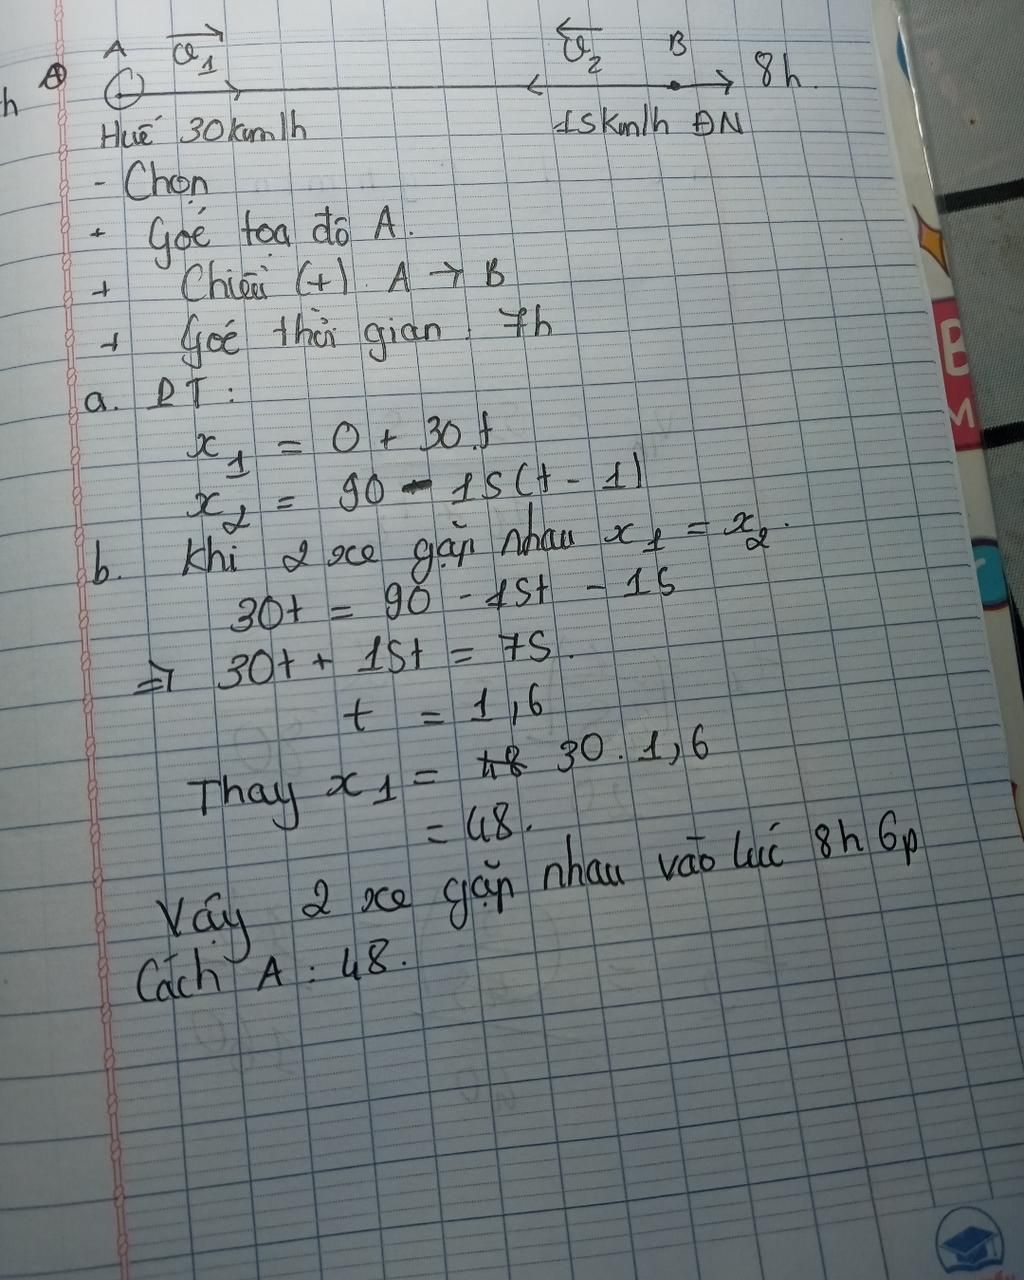 h
A v₁ v₂ B 8h.
Huế 30km/h 15km/h ĐN
- Chọn
+ Gốc tọa độ A.
+ Chiều (+) A → B
+ Gốc thời gian : 7h
a. PT :
x₁ = 0 + 30.t
x₂ = 90 - 15(t - 1)
b. Khi 2 xe gặp nhau x₁ = x₂.
30t = 90 - 15t - 15
=> 30t + 15t = 75.
t = 1,6
Thay x₁ = 48 30.1,6
= 48.
Vậy 2 xe gặp nhau vào lúc 8h 6p
Cách A : 48.
B
M